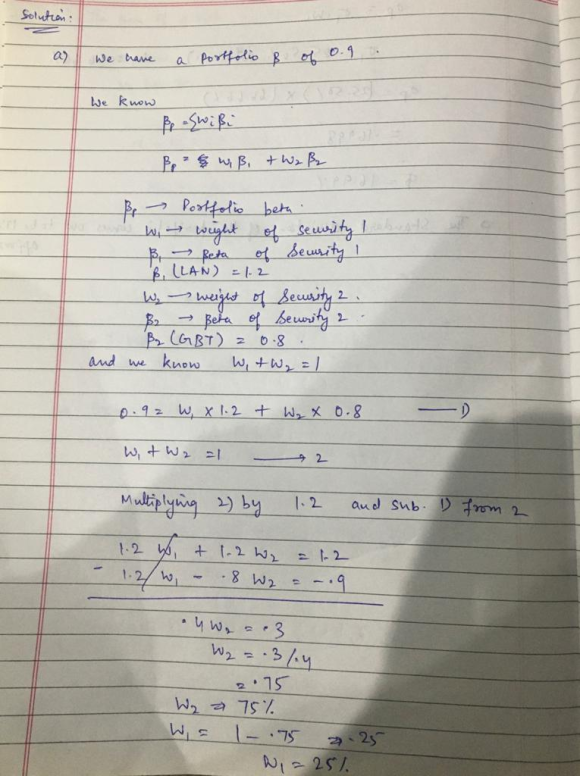 Solution:
a) We have a Portfolio β of 0.9 .
We know
βp = ΣWiβi
βp = W1 β1 + W2 β2
βp → Portfolio beta.
W1 → weight of security 1
β1 → Beta of Security 1
β1 (LAN) = 1.2
W2 → weight of Security 2 .
β2 → Beta of Security 2 .
β2 (GBT) = 0.8 .
and we know W1 + W2 = 1
0.9 = W1 x 1.2 + W2 x 0.8 — 1)
W1 + W2 = 1 → 2
Multiplying 2) by 1.2 and sub. 1) from 2
1.2 W1 + 1.2 W2 = 1.2
- 1.2 W1 - .8 W2 = - .9
.4 W2 = .3
W2 = .3/.4
= .75
W2 ⇒ 75%
W1 = 1 - .75 ⇒ .25
W1 = 25%